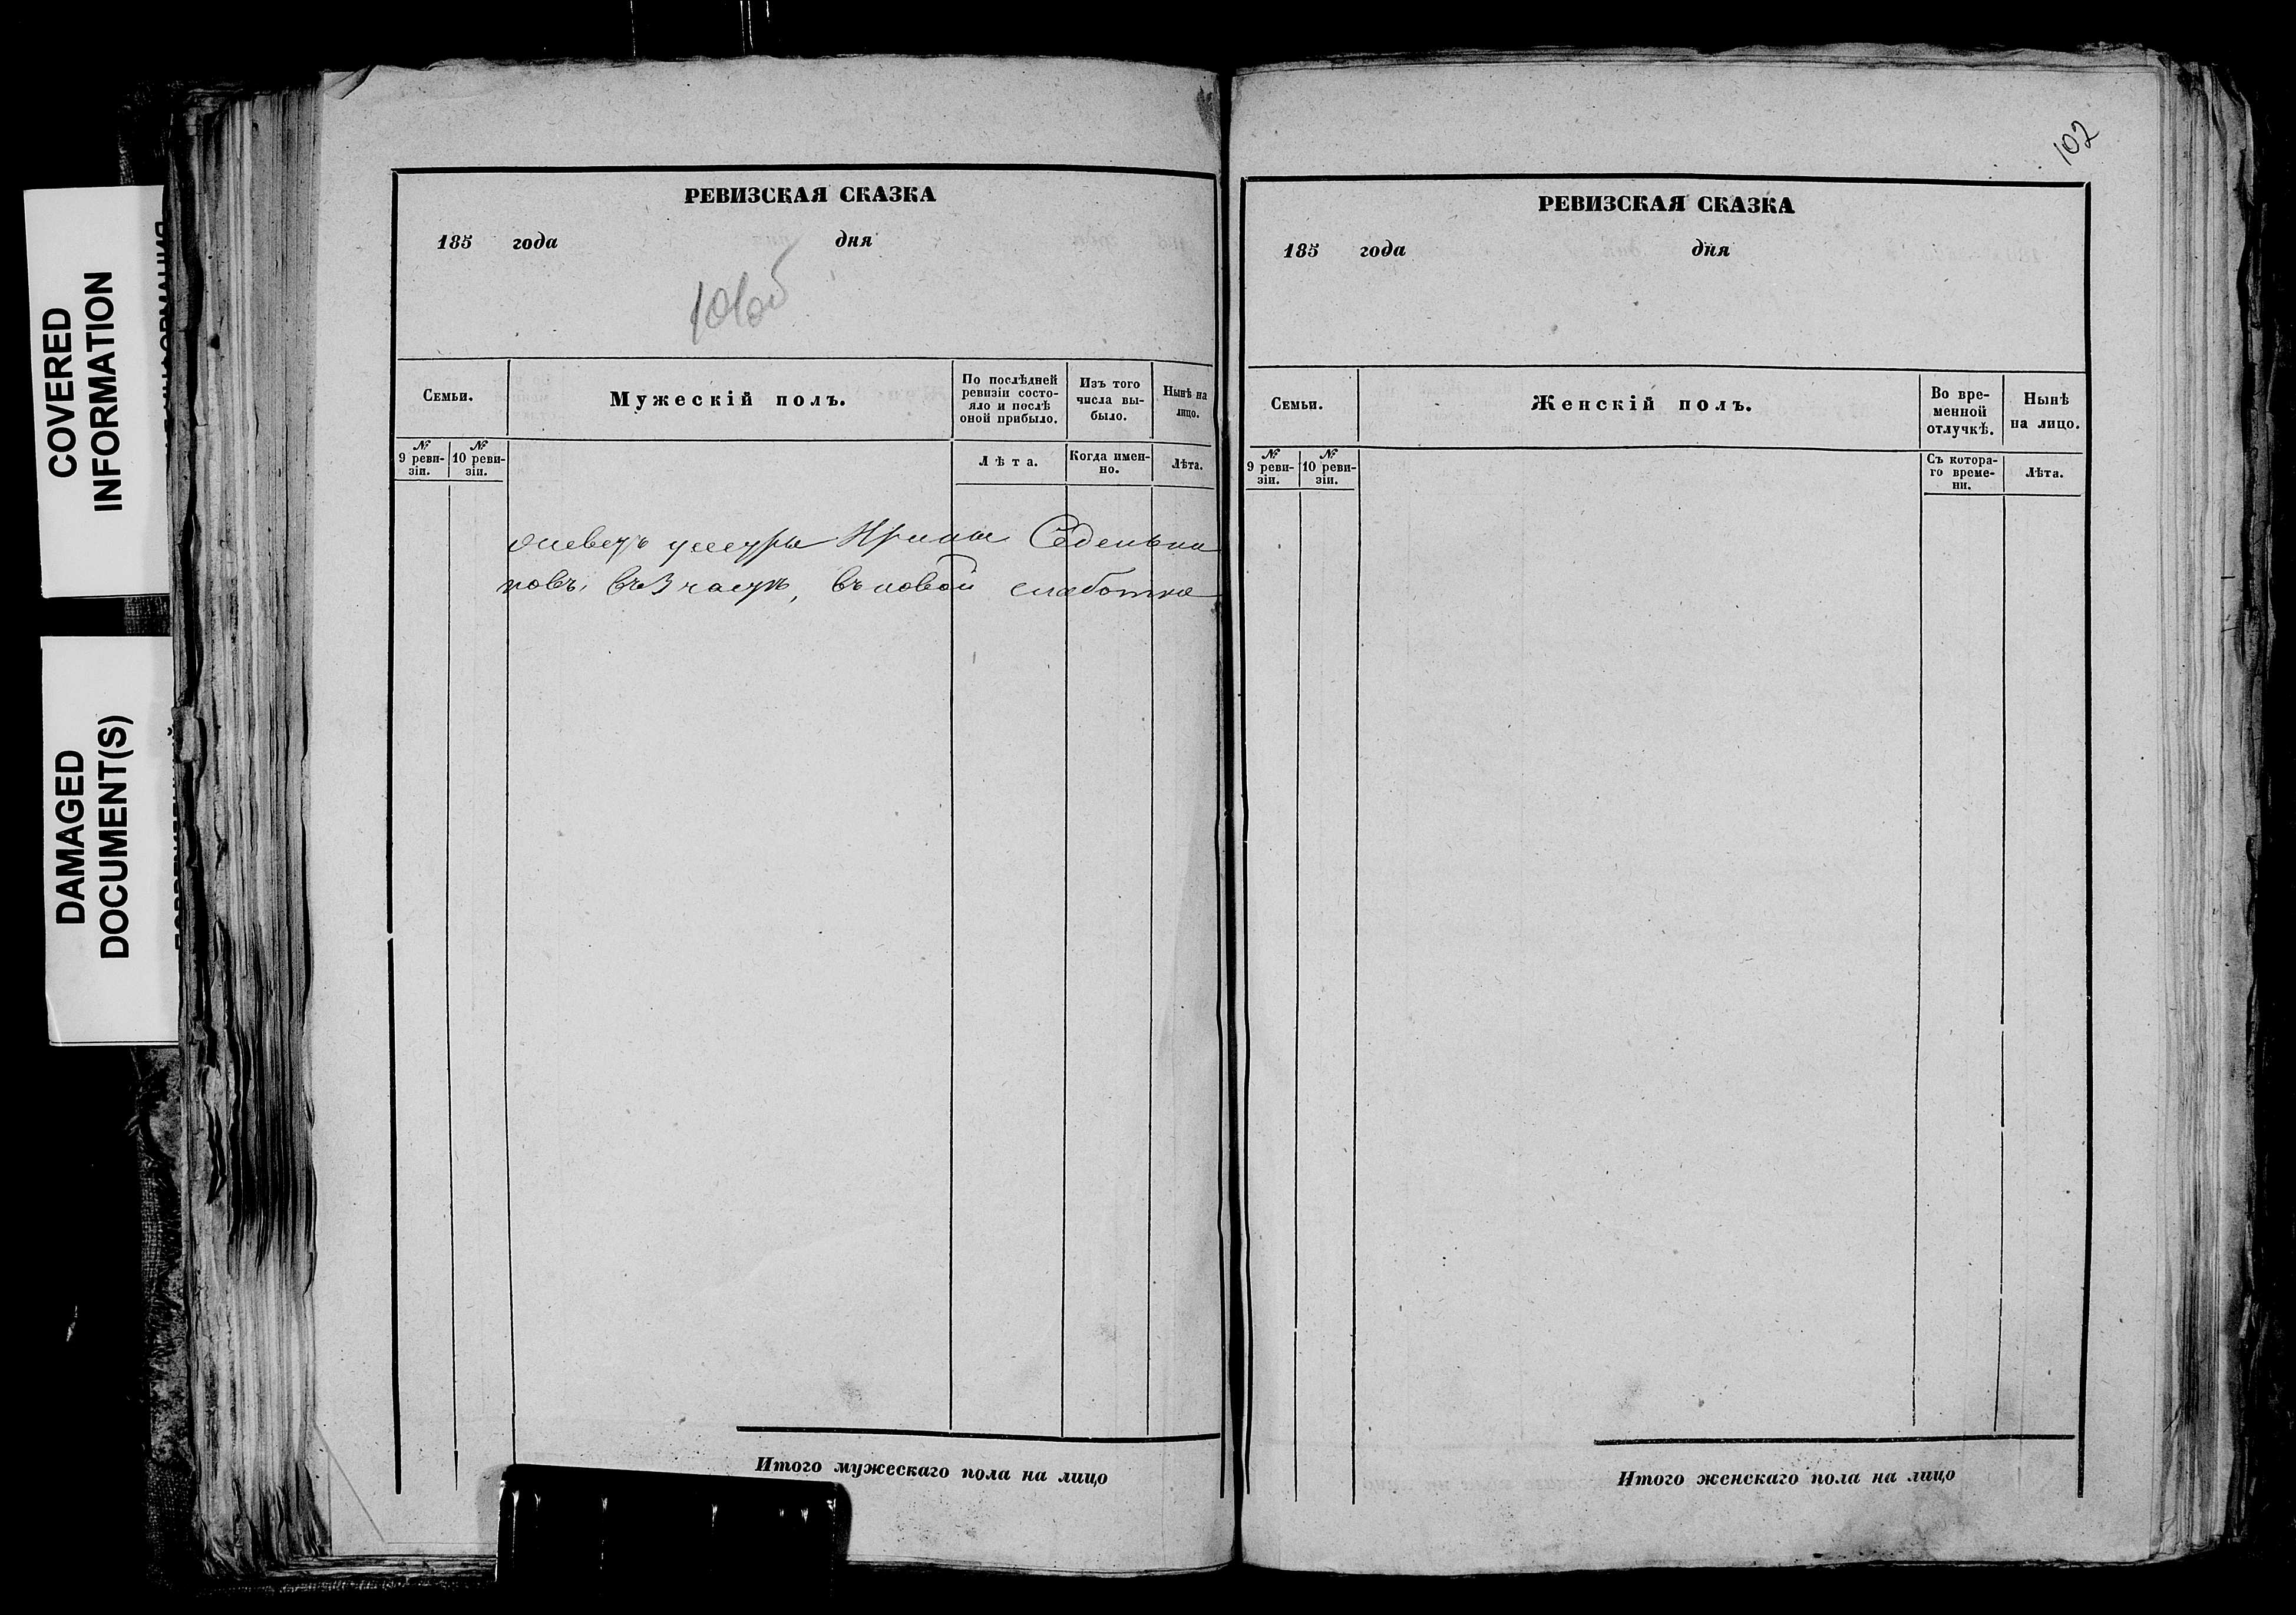 COVERED
INFORMATION
DAMAGED
DOCUMENT(S)
РЕВИЗСКАЯ СКАЗКА
185 года дня
101об
Семьи.
Мужескій полъ.
По послѣдней
ревизіи состо-
яло и послѣ
оной прибыло.
Изъ того
числа вы-
было.
Нынѣ на
лицо.
№
9 реви-
зіи.
№
10 реви-
зіи.
Лѣта.
Когда имен-
но.
Лѣта.
Ирины
въ новой
Итого мужескаго пола на лицо
102
РЕВИЗСКАЯ СКАЗКА
185 года дня
Семьи.
Женскій полъ.
Во вре-
менной
отлучкѣ.
Нынѣ
на лицо.
№
9 реви-
зіи.
№
10 реви-
зіи.
Съ котора-
го време-
ни.
Лѣта.
Итого женскаго пола на лицо